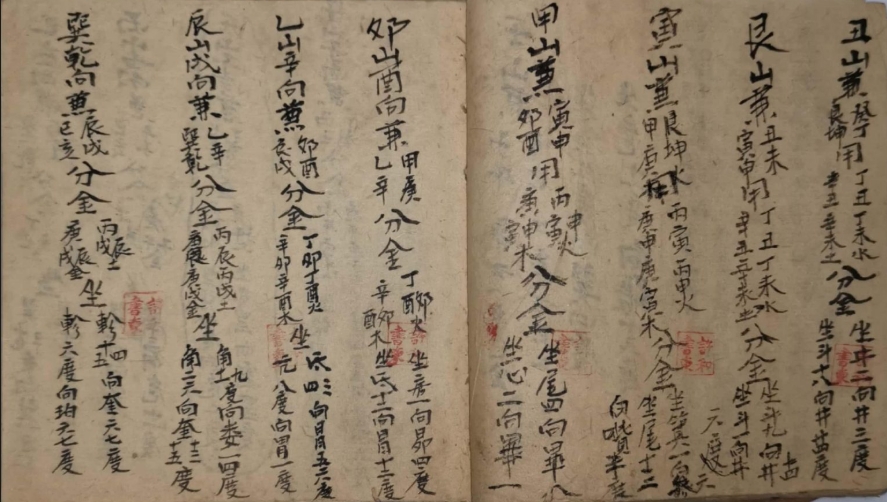 丑山兼癸丁艮坤用丁丑丁未水辛丑辛未土分金坐斗二向井三度坐斗十八向井廿度
艮山兼丑未寅申用丁丑丁未水辛丑辛未土分金坐斗九向井坐斗一向井
寅山兼艮坤甲庚用丙寅丙申火庚申庚寅木分金坐箕一向坐尾十二向觜半度
甲山兼寅申卯酉用丙寅申火庚寅申木分金坐尾四向畢八坐心二向畢一
卯山酉向兼甲庚乙辛分金丁卯酉火辛卯酉木坐房一向昴四度坐氐十一向胃十二度
乙山辛向兼卯酉辰戌分金丁卯丁酉火辛卯辛酉木坐氐四向胃五六度亢八度向胃一度
辰山戌向兼乙辛巽乾分金丙辰丙戌土庚辰庚戌金坐角十九度向婁一四度角二六向奎十三十五度
巽乾向兼辰戌巳亥分金丙辰戌土庚辰戌金坐軫十四十五向奎六七度軫六度向珀六七度